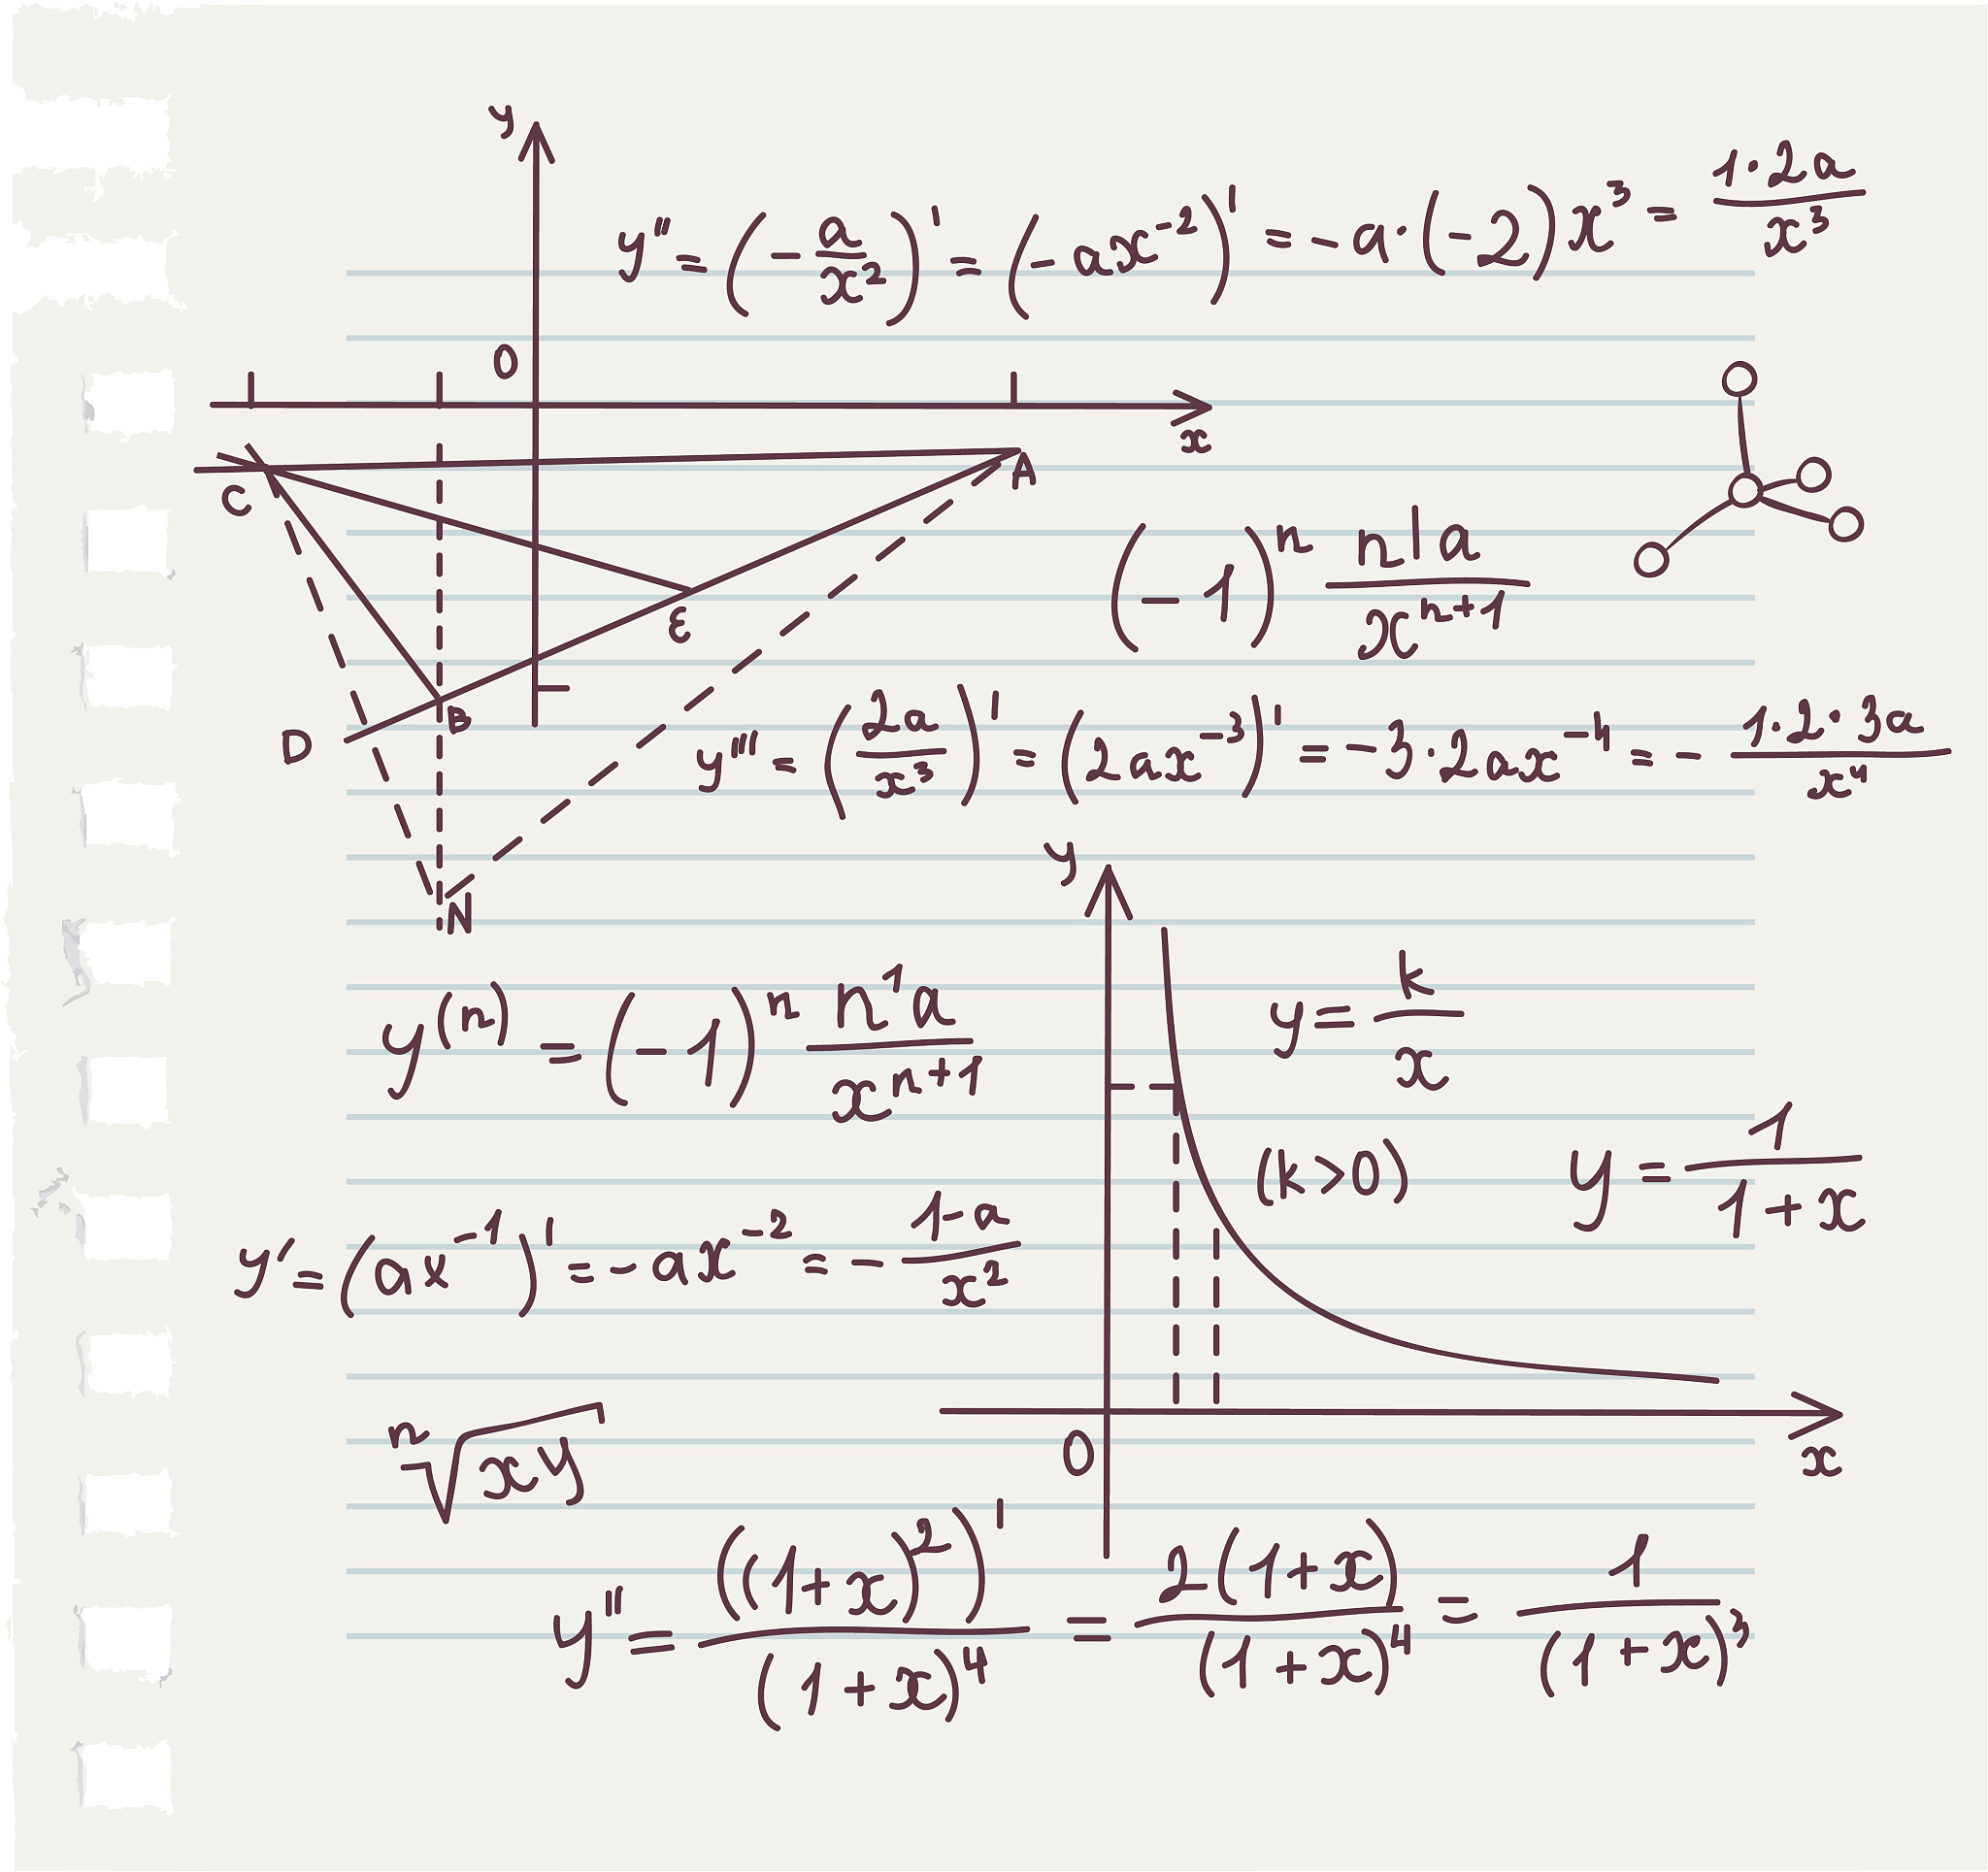 y
y'' = (-a/x²)' = (-ax⁻²)' = -a·(-2)x³ = 1·2a/x³
0
x
C
A
(-1)ⁿ n|a/xⁿ⁺¹
E
B
D
y''' = (2a/x³)' = (2ax⁻³)' = -3·2ax⁻⁴ = -1·2·3a/x⁴
N
y
y⁽ⁿ⁾ = (-1)ⁿ n'a/xⁿ⁺¹
y = k/x
(k>0)
y = 1/(1+x)
y' = (ax⁻¹)' = -ax⁻² = -(1-a)/x²
ⁿ√xy
0
x
y'' = ((1+x)²)'/(1+x)⁴ = 2(1+x)/(1+x)⁴ = 1/(1+x)³